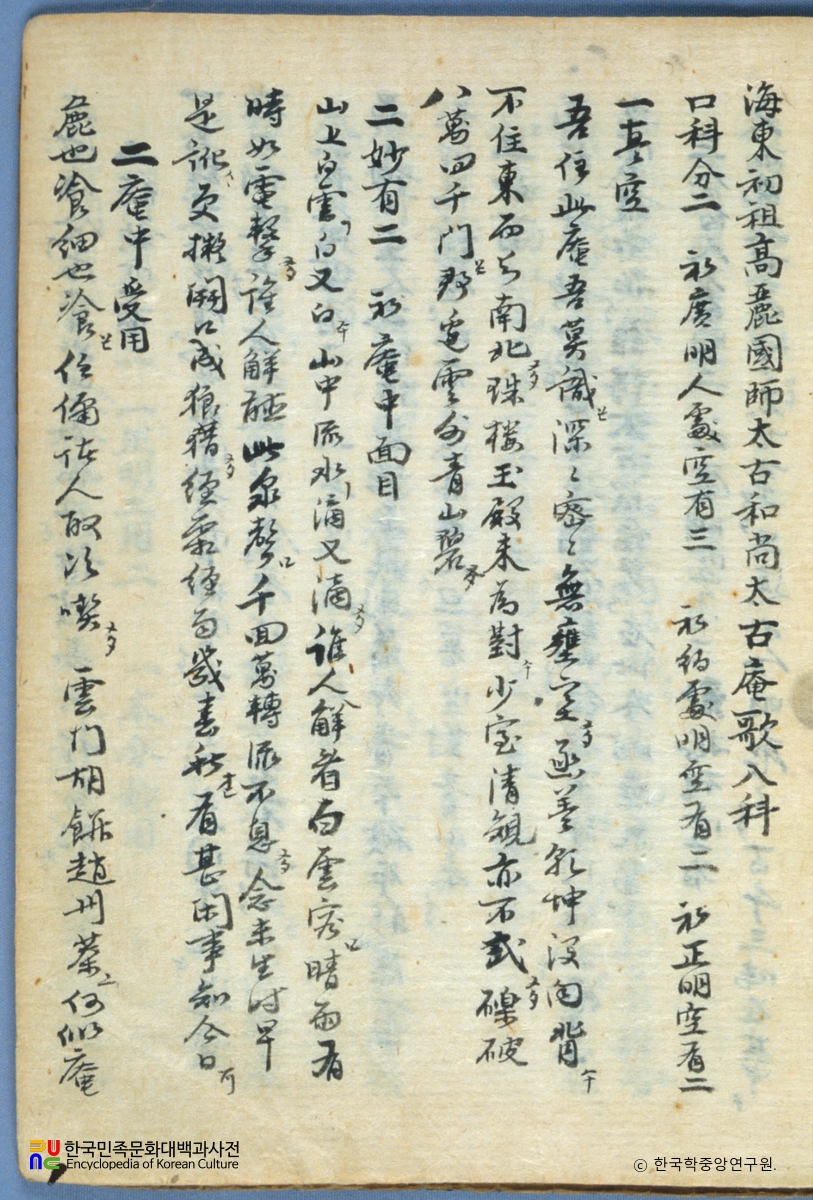 海東初祖高麗國師太古和尚太古庵歌入科
口科分二 初廣明人處空有三 初約處明空有二 初正明空有二
一真空
吾住此庵吾莫識 深〻密〻無壅塞 函蓋乾坤沒向背
不住東西與南北 珠樓玉殿未為對 少室清規亦不式 爍破
八萬四千門 那邊雲外青山碧
二妙有二 初庵中面目
山上白雲白又白 山中流水滴又滴 誰人解看白雲容 晴雨有
時如電擊 誰人解聽此泉聲 千回萬轉流不息 念未生時早
是訛 更擬開口成狼藉 經霜經雨幾春秋 有甚閑事知今日
二庵中受用
麁也飡細也飡 任儞諸人取次喫 雲門胡餠趙州茶 何似庵
한국민족문화대백과사전
Encyclopedia of Korean Culture
ⓒ 한국학중앙연구원.